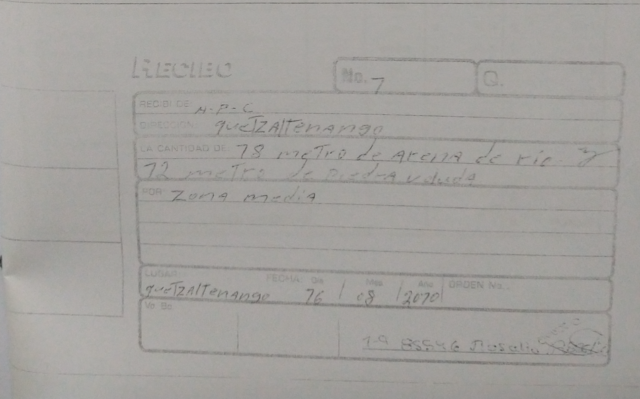 RECIBO
No. 7
Q.
RECIBI DE: M.P.C
DIRECCION: quetzaltenango
LA CANTIDAD DE: 18 metro de arena de rio y
12 metro de piedra
POR: Zona media
LUGAR: FECHA: Dia Mes Año ORDEN No.
quetzaltenango 16 / 08 / 2010
Vo. Bo.